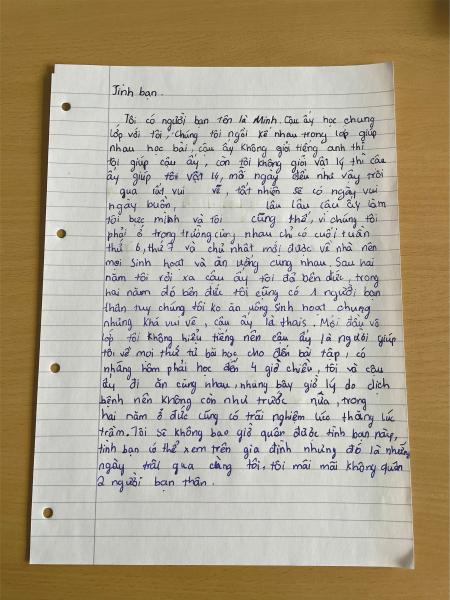 Tình bạn.
Tôi có người bạn tên là Minh. Cậu ấy học chung
lớp với tôi, chúng tôi ngồi kế nhau trong lớp giúp
nhau học bài, cậu ấy không giỏi tiếng anh thì
tôi giúp cậu ấy, còn tôi không giỏi vật lý thì cậu
ấy giúp tôi vật lý, mỗi ngày đều như vậy trôi
qua rất vui vẽ, tất nhiên sẽ có ngày vui
ngày buồn, lâu lâu cậu ấy làm
tôi bực mình và tôi cũng thế, vì chúng tôi
phải ở trong trường cùng nhau chỉ có cuối tuần
thứ 6, thứ 7 và chủ nhật mới được về nhà nên
mọi sinh hoạt và ăn uống cùng nhau. Sau hai
năm tôi rời xa cậu ấy tôi đã đến đức, trong
hai năm đó bên đức tôi cũng có 1 người bạn
thân tuy chúng tôi ko ăn uống sinh hoạt chung
nhưng khá vui vẻ, cậu ấy là thais. Mới đầu vô
lớp tôi không hiểu tiếng nên cậu ấy là người giúp
tôi về mọi thứ từ bài học cho đến bài tập, có
những hôm phải học đến 4 giờ chiều, tôi và cậu
ấy đi ăn cùng nhau, nhưng bây giờ lý do dịch
bệnh nên không còn như trước nữa, trong
hai năm ở đức cũng có trãi nghiệm lúc thăng lúc
trầm. Tôi sẽ không bao giờ quên được tình bạn này,
tình bạn có thể xem trên gia đình nhưng đó là những
ngày trãi qua cùng tôi, tôi mãi mãi không quên
2 người bạn thân.